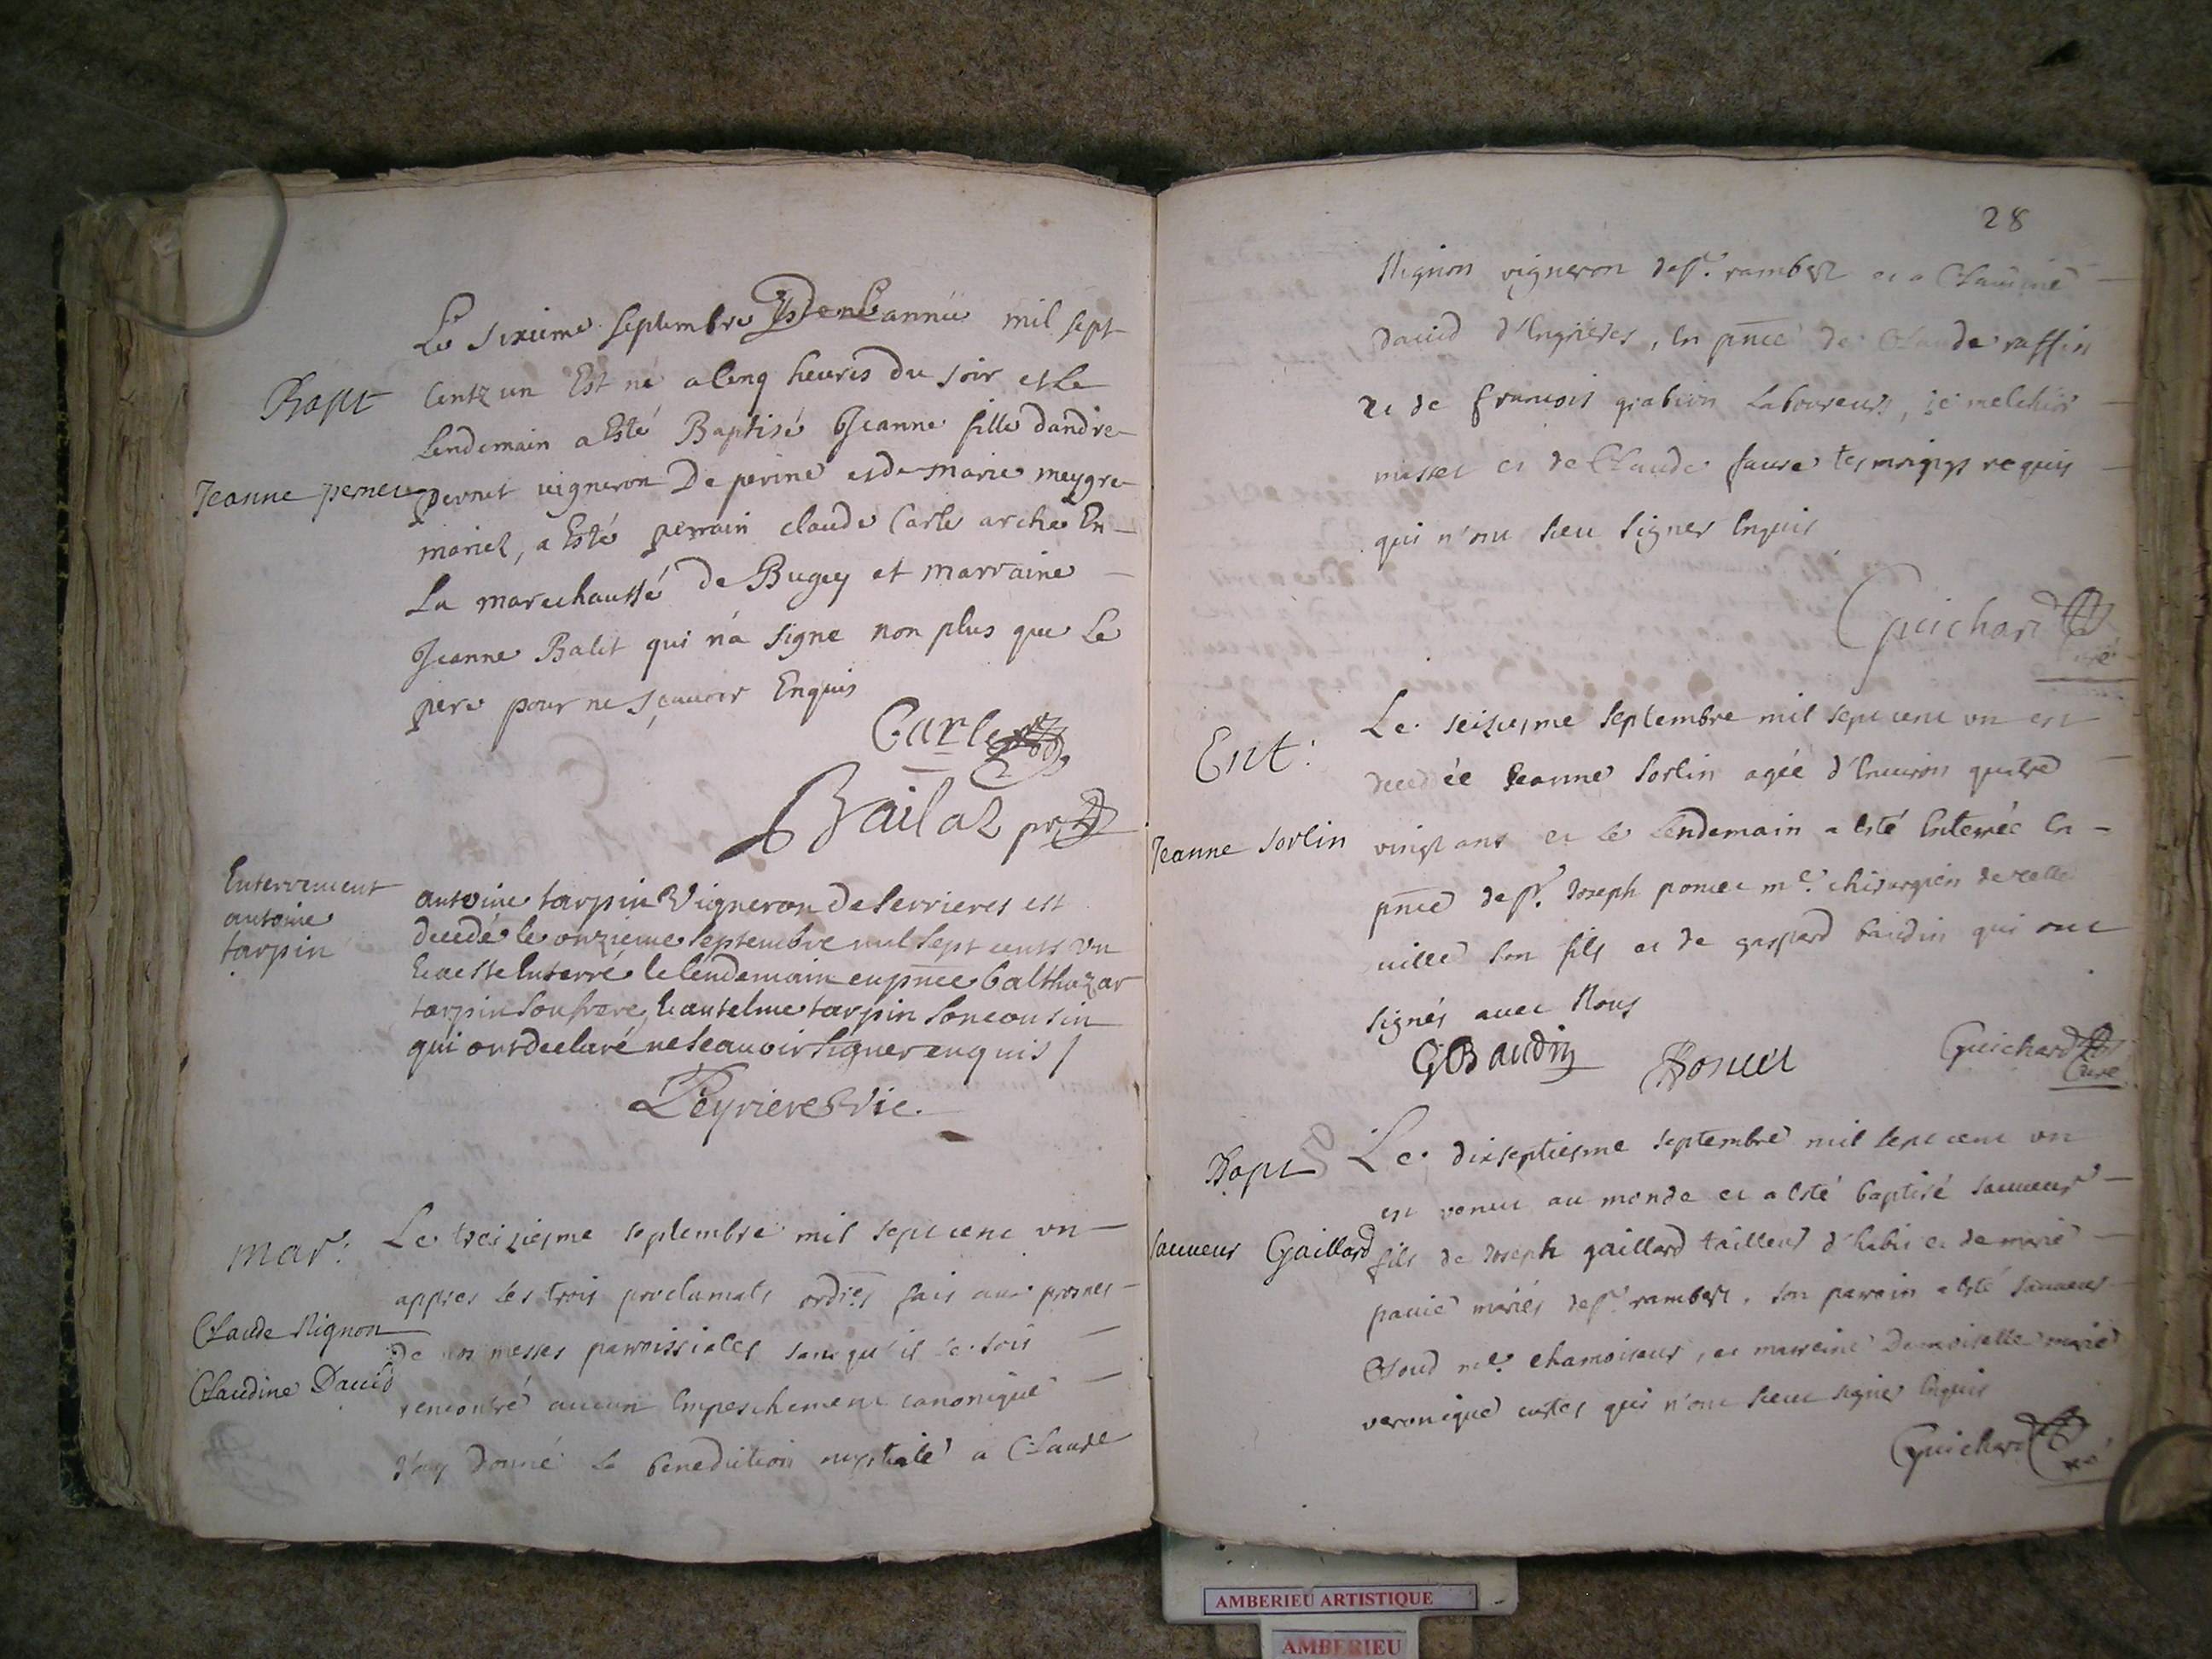 Bapt
Jeanne pernet
Le sixieme septembre Den Lannée mil sept
centz un Est né a Cinq heures du soir et Le
Lendemain a Esté Baptisé Jeanne fille dandre
pernet vigneron De perine et de marie meygre
mariez, a Esté perrain claude Carle archer En
La marechaussé de Bugey et marraine
Jeanne Balet qui n'a signe non plus que Le
pere pour ne sçauvoir Enquis
Carle
Bailat ptr
Enterrement
antoine
tarpin
antoine tarpin Vigneron de serrieres est
decedé le onzieme septembre mil sept cents un
Et a esté Enterré le lendemain en pnce balthazar
tarpin son frere, Et antelme tarpin son cousin
qui ont declaré ne scauoir signer enquis /
Peyrieres vic.
mar:
Claude Mignon
Claudine Dauid
Le treiziesme septembre mil sept cent un
appres les trois proclamats ordres fais aux prosnes
de nos messes parroissiales sans qu'il se soit
rencontré aucun Empeschement canonique
J'ay donné la benediction nuptiale a Claude
28
Mignon vigneron de st. rambert et a Claudine
dauid d'Engrieres, En pnce de Claude raffin
et de francois grabion Laboureurs, de melchior
misset et de Claude faure tesmoings requis
qui n'ont sceu signer Enquis
Guichard
Curé
Ent:
Jeanne sorlin
Le seiziesme septembre mil sept cent un est
decedée Jeanne sorlin agée d'Enuiron quatre
vingt ans et le Lendemain a esté Enterrée En
pnce de sr. Joseph poncet me. chirurgien de cette
ville son fils et de gaspard baudin qui ont
signés auec Nous
G Baudin
Poncet
Guichard
Curé
Bapt
sauueur Gaillard
Le dixseptiesme septembre mil sept cent un
est venu au monde et a Esté baptisé sauueur
fils de Joseph gaillard tailleur d'habis et de marie
pauie mariés de st. rambert, son parrain a Esté sauueur
Cloud me. chamoiseur, et marreine Damoiselle marie
veronique qui n'ont sceu signer Enquis
Guichard
Curé
AMBERIEU ARTISTIQUE
AMBERIEU